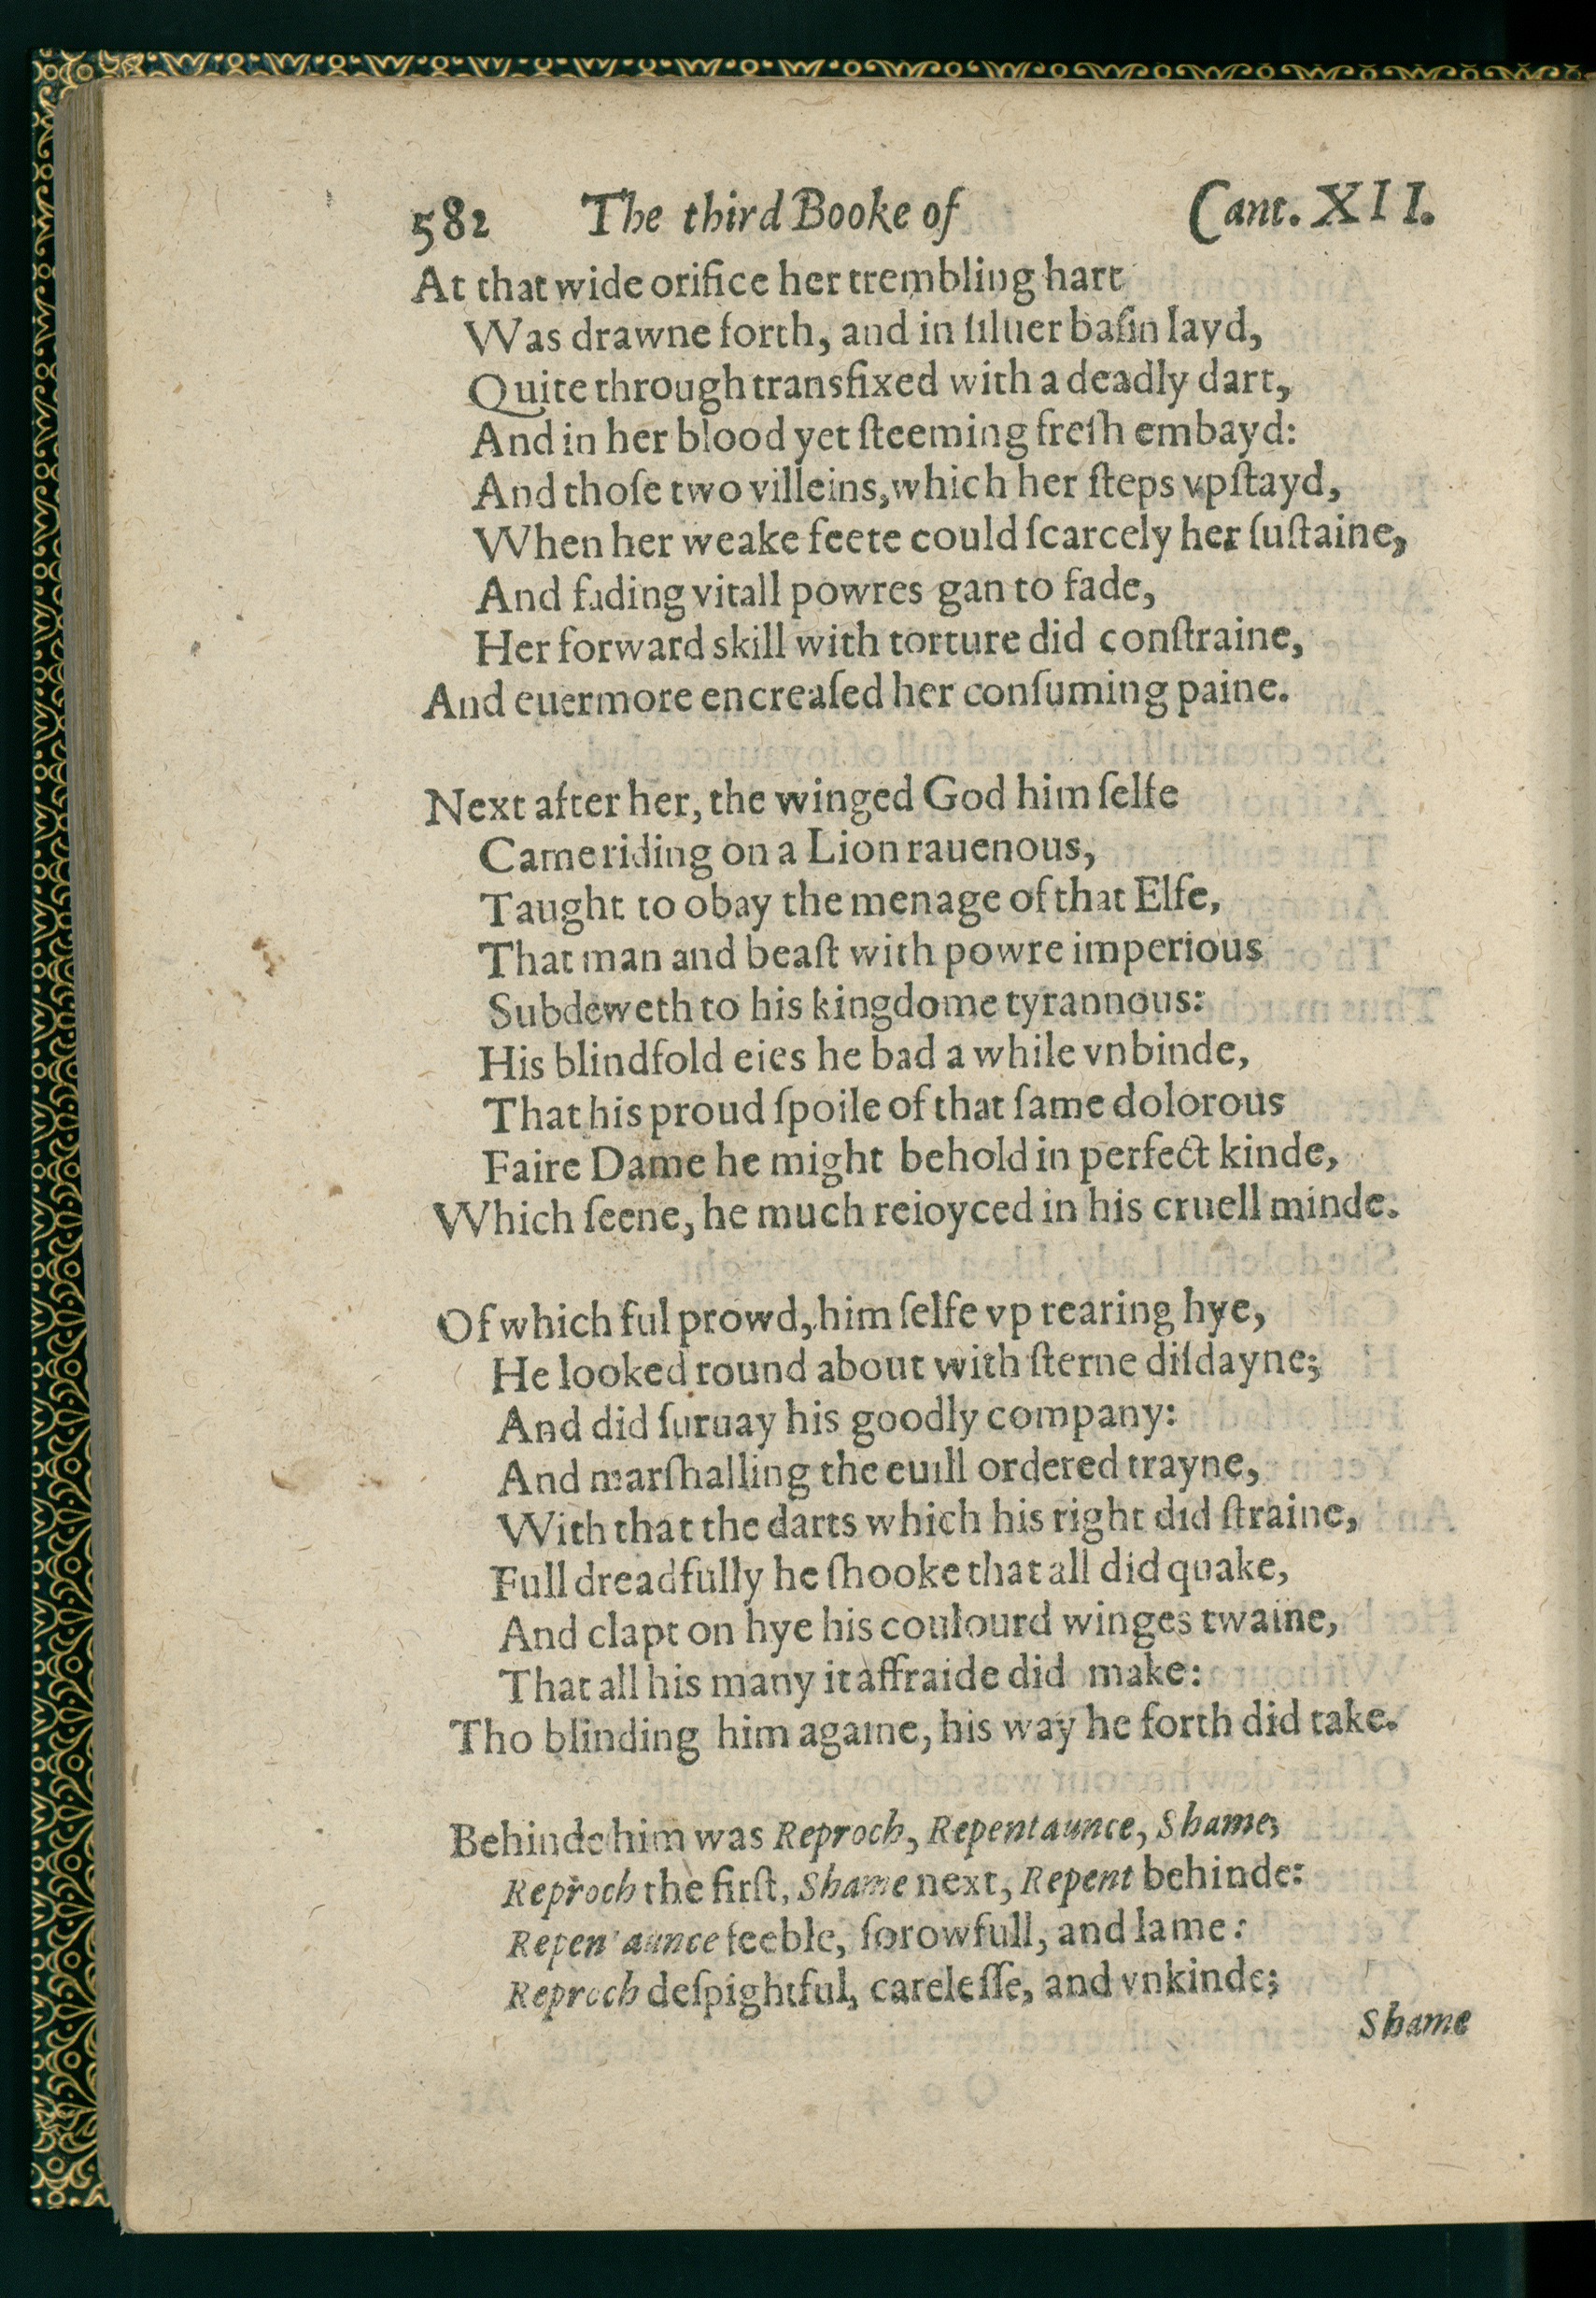 582 The third Booke of Cant. XII.
At that wide orifice her trembling hart
Was drawne forth, and in ſiluer baſin layd,
Quite through transfixed with a deadly dart,
And in her blood yet ſteeming freſh embayd:
And thoſe two villeins, which her ſteps vpſtayd,
When her weake feete could ſcarcely her ſuſtaine,
And fading vitall powres gan to fade,
Her forward skill with torture did conſtraine,
And euermore encreaſed her conſuming paine.
Next after her, the winged God him ſelfe
Came riding on a Lion rauenous,
Taught to obay the menage of that Elfe,
That man and beaſt with powre imperious
Subdeweth to his kingdome tyrannous:
His blindfold eies he bad a while vnbinde,
That his proud ſpoile of that ſame dolorous
Faire Dame he might behold in perfect kinde,
Which ſeene, he much reioyced in his cruell minde.
Of which ful prowd, him ſelfe vp rearing hye,
He looked round about with ſterne diſdayne;
And did ſuruay his goodly company:
And marſhalling the euill ordered trayne,
With that the darts which his right did ſtraine,
Full dreadfully he ſhooke that all did quake,
And clapt on hye his coulourd winges twaine,
That all his many it affraide did make:
Tho blinding him againe, his way he forth did take.
Behinde him was Reproch, Repentaunce, Shame;
Reproch the firſt, Shame next, Repent behinde:
Repentaunce feeble, ſorowfull, and lame:
Reproch deſpightful, careleſſe, and vnkinde;
Shame